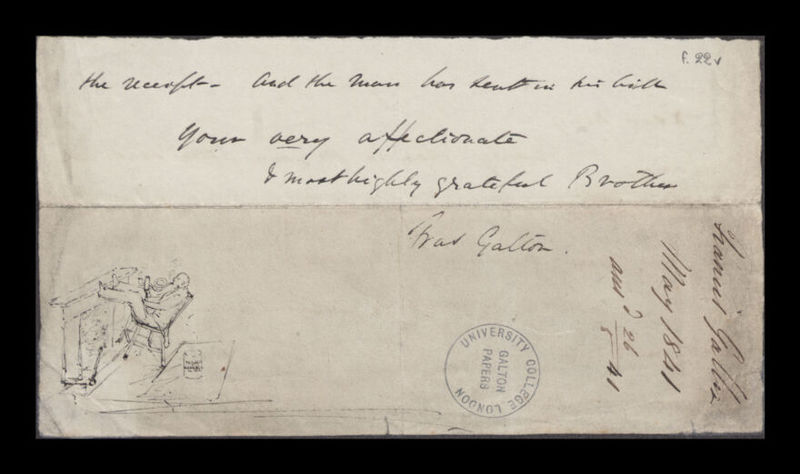 f. 22v
the receipt – And the man has sent in his bill
Your very affectionate
& most highly grateful Brother
Fras Galton.
Francis Galton
May 1841
ans d 26/5 41
UNIVERSITY COLLEGE LONDON
GALTON
PAPERS